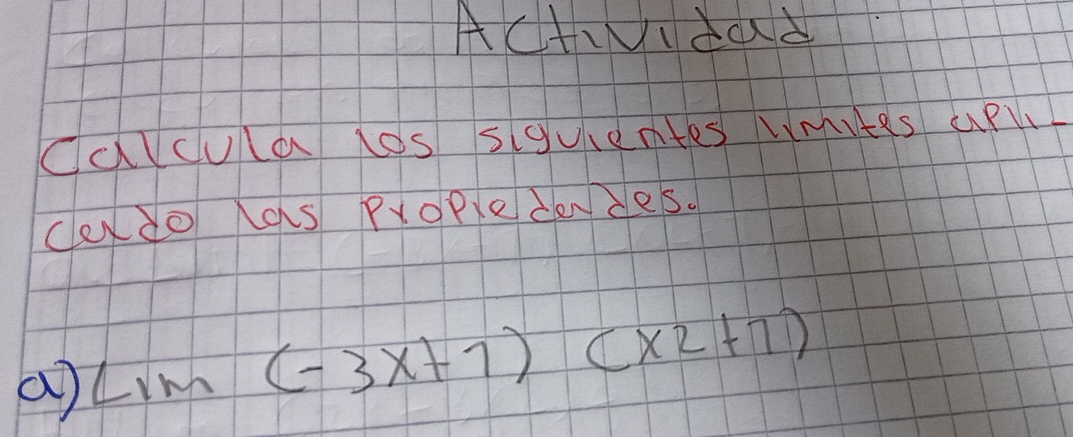 Actividad
Calcula los siguientes limites apli-
cando las Propiedades.
a) Lim (-3x+1) (x2+1)